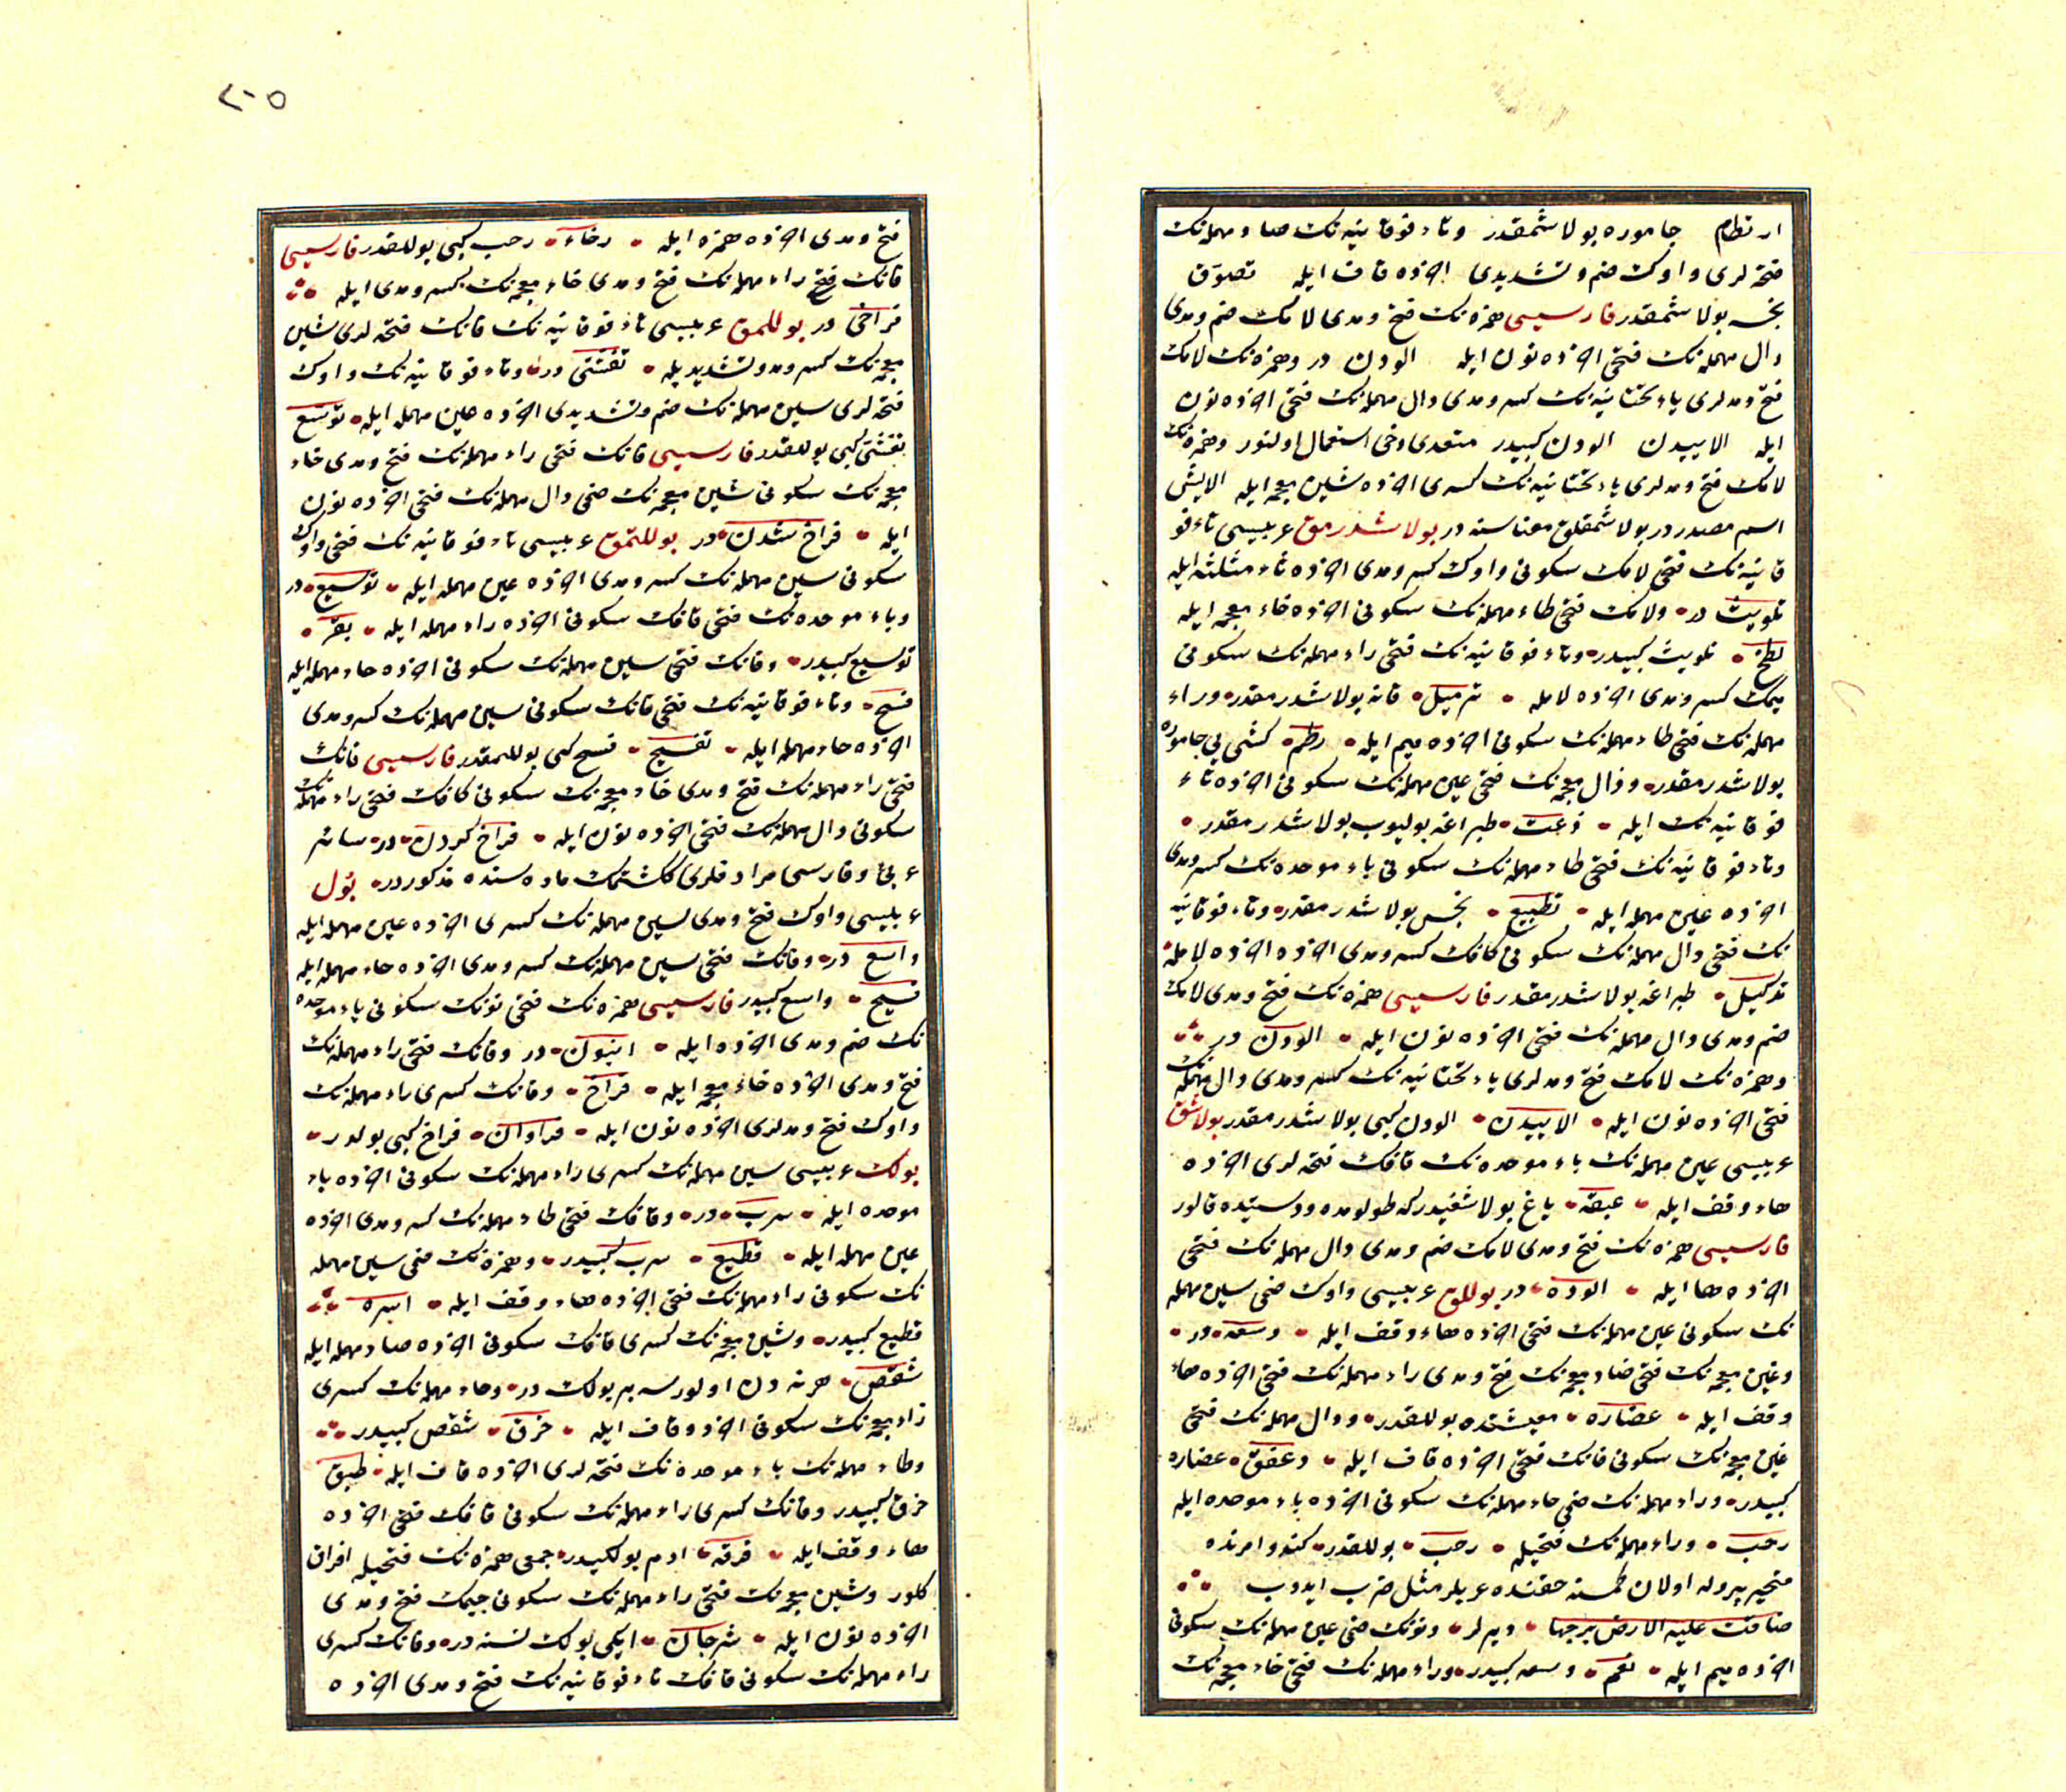 ارتطام جاموره بولاشمقدر وتاء فوقانیه نك صاد مهمله نك
فتحه لری واوك ضم وتشدیدی اخرده قاف ایله تصوق
نجسه بولاشمقدر فارسیسی همزه نك فتح ومدی لامك ضم ومدی
دال مهمله نك فتحی اخرده نون ایله الودن در وهمزه نك لامك
فتح ومدلری یاء تحتانیه نك کسر ومدی دال مهمله نك فتحی اخرده نون
ایله الاییدن الودن کبیدر متعدی دخی استعمال اولنور وهمزه نك
لامك فتح ومدلری یاء تحتانیه نك کسری اخرده شین معجمه ایله الایش
اسم مصدردر بولاشمقلق معناسنه در بولاشدرمق عربیسی تاء فو
قانیه نك فتحی لامك سکونی واوك کسر ومدی اخرده ثاء مثلثه ایله
تلویث در ولامك فتحی طاء مهمله نك سکونی اخرده خاء معجمه ایله
لطخ تلویث کبیدر وتاء فوقانیه نك فتحی راء مهمله نك سکونی
میمك کسر ومدی اخرده لامله ترمیل قانه بولاشدرمقدر وراء
مهمله نك فتحی طاء مهمله نك سکونی اخرده میم ایله رطم کشی یی جاموره
بولاشدرمقدر وذال معجمه نك فتحی عین مهمله نك سکونی اخرده تاء
فوقانیه نك ایله ذعت طپراغه بولیوب بولاشدرمقدر
وتاء فوقانیه نك فتحی طاء مهمله نك سکونی باء موحده نك کسر ومدی
اخرده عین مهمله ایله تطبیع نجس بولاشدرمقدر وتاء فوقانیه
نك فتحی دال مهمله نك سکونی کافك کسر ومدی اخرده اخرده لامله
تدکیل طپراغه بولاشدرمقدر فارسیسی همزه نك فتح ومدی لامك
ضم ومدی دال مهمله نك فتحی اخرده نون ایله الودن در
وهمزه نك لامك فتح ومدلری یاء تحتانیه نك کسر ومدی دال مهمله نك
فتحی اخرده نون ایله الاییدن الودن کبی بولاشدرمقدر بولاشق
عربیسی عین مهمله نك باء موحده نك قافك فتحه لری اخرده
هاء وقف ایله عبقه یاغ بولاشغیدرکه طولومده ودستیده قالور
فارسیسی همزه نك فتح ومدی لامك ضم ومدی دال مهمله نك فتحی
اخرده ها ایله الوده در بوللق عربیسی واوك ضمی سین مهمله
نك سکونی عین مهمله نك فتحی اخرده هاء وقف ایله وسعه در
وغین معجمه نك فتحی ضاد معجمه نك فتح ومدی راء مهمله نك فتحی اخرده هاء
وقف ایله غضاره معیشتده بوللقدر ودال مهمله نك فتحی
غین معجمه نك سکونی فانك فتحی اخرده قاف ایله دغفق غضاره
کبیدر وراء مهمله نك ضمی حاء مهمله نك سکونی اخرده باء موحده ایله
رحب وراء مهمله نك فتحیله رحب بوللقدر کندو امرنده
متحیر اولان کمسنه حقنده عربلر مثل ضرب ایدوب
ضاقت علیه الارض برحبها دیرلر ونونك ضمی عین مهمله نك سکونی
اخرده میم ایله نعم وسعه کبیدر وراء مهمله نك فتحی خاء معجمه نك
۲۰۵
فتح ومدی اخرده همزه ایله رخاء رحب کبی بوللقدر فارسیسی
فانك فتحی راء مهمله نك فتح ومدی خاء معجمه نك کسر ومدی ایله
فراخی در بوللمق عربیسی تاء فوقانیه نك فانك فتحه لری شین
معجمه نك کسر ومد وتشدیدیله تفشی در وتاء فوقانیه نك واوك
فتحه لری سین مهمله نك ضم وتشدیدی اخرده عین مهمله ایله توسع
تفشی کبی بوللقدر فارسیسی فانك فتحی راء مهمله نك فتح ومدی خاء
معجمه نك سکونی شین معجمه نك ضمی دال مهمله نك فتحی اخرده نون
ایله فراخ شدن در بوللتمق عربیسی تاء فوقانیه نك فتحی واوك
سکونی سین مهمله نك کسر ومدی اخرده عین مهمله ایله توسیع در
وباء موحده نك فتحی قافك سکونی اخرده راء مهمله ایله بقر
توسیع کبیدر وفانك فتحی سین مهمله نك سکونی اخرده حاء مهمله ایله
فسح وتاء فوقانیه نك فتحی فانك سکونی سین مهمله نك کسر ومدی
اخرده حاء مهمله ایله تفسیح فسح کبی بوللتمقدر فارسیسی فانك
فتحی راء مهمله نك فتح ومدی خاء معجمه نك سکونی کافك فتحی راء مهمله نك
سکونی دال مهمله نك فتحی اخرده نون ایله فراخ کردن در سائر
عربی وفارسی مرادفلری کنشتمك ماده سنده مذکوردر بول
عربیسی واوك فتح ومدی سین مهمله نك کسری اخرده عین مهمله ایله
واسع در وفانك فتحی سین مهمله نك کسر ومدی اخرده حاء مهمله ایله
فسیح واسع کبیدر فارسیسی همزه نك فتحی نونك سکونی باء موحده
نك ضم ومدی اخرده ایله انبون در وفانك فتحی راء مهمله نك
فتح ومدی اخرده خاء معجمه ایله فراخ وفانك کسری راء مهمله نك
واوك فتح ومدلری اخرده نون ایله فراوان فراخ کبی بولدر
بولك عربیسی سین مهمله نك کسری راء مهمله نك سکونی اخرده باء
موحده ایله سرب در وقافك فتحی طاء مهمله نك کسر ومدی اخرده
عین مهمله ایله قطیع سرب کبیدر وهمزه نك ضمی سین مهمله
نك سکونی راء مهمله نك فتحی اخرده هاء وقف ایله اسره
قطیع کبیدر وشین معجمه نك کسری قافك سکونی اخرده صاد مهمله ایله
شقص هر نه دن اولورسه بر بولك در وحاء مهمله نك کسری
زاء معجمه نك سکونی اخرد وقاف ایله حزق شقص کبیدر
وطاء مهمله نك باء موحده نك فتحه لری اخرده قاف ایله طبق
حزق کبیدر وفانك کسری راء مهمله نك سکونی قافك فتحی اخرده
هاء وقف ایله فرقه ادم بولکیدر جمعی همزه نك فتحیله افراق
کلور وشین معجمه نك فتحی راء مهمله نك سکونی جیمك فتح ومدی
اخرده نون ایله شرجان ایکی بولك نسنه در وفانك کسری
راء مهمله نك سکونی قافك تاء فوقانیه نك فتح ومدی اخرده